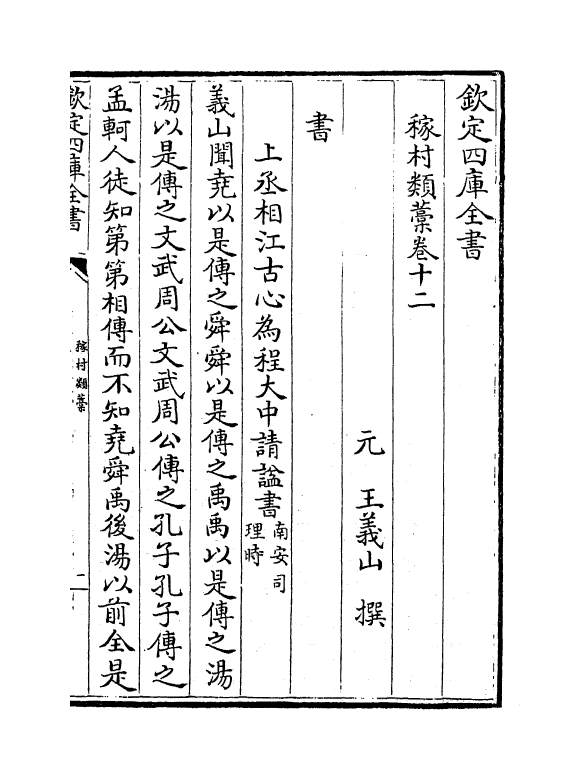 欽定四庫全書
稼村類藁卷十二
元 王義山 撰
書
上丞相江古心為程大中請諡書南安司理時
義山聞堯以是傳之舜舜以是傳之禹禹以是傳之湯
湯以是傳之文武周公文武周公傳之孔子孔子傳之
孟軻人徒知第第相傳而不知堯舜禹後湯以前全是
欽定四庫全書
稼村類藁
二